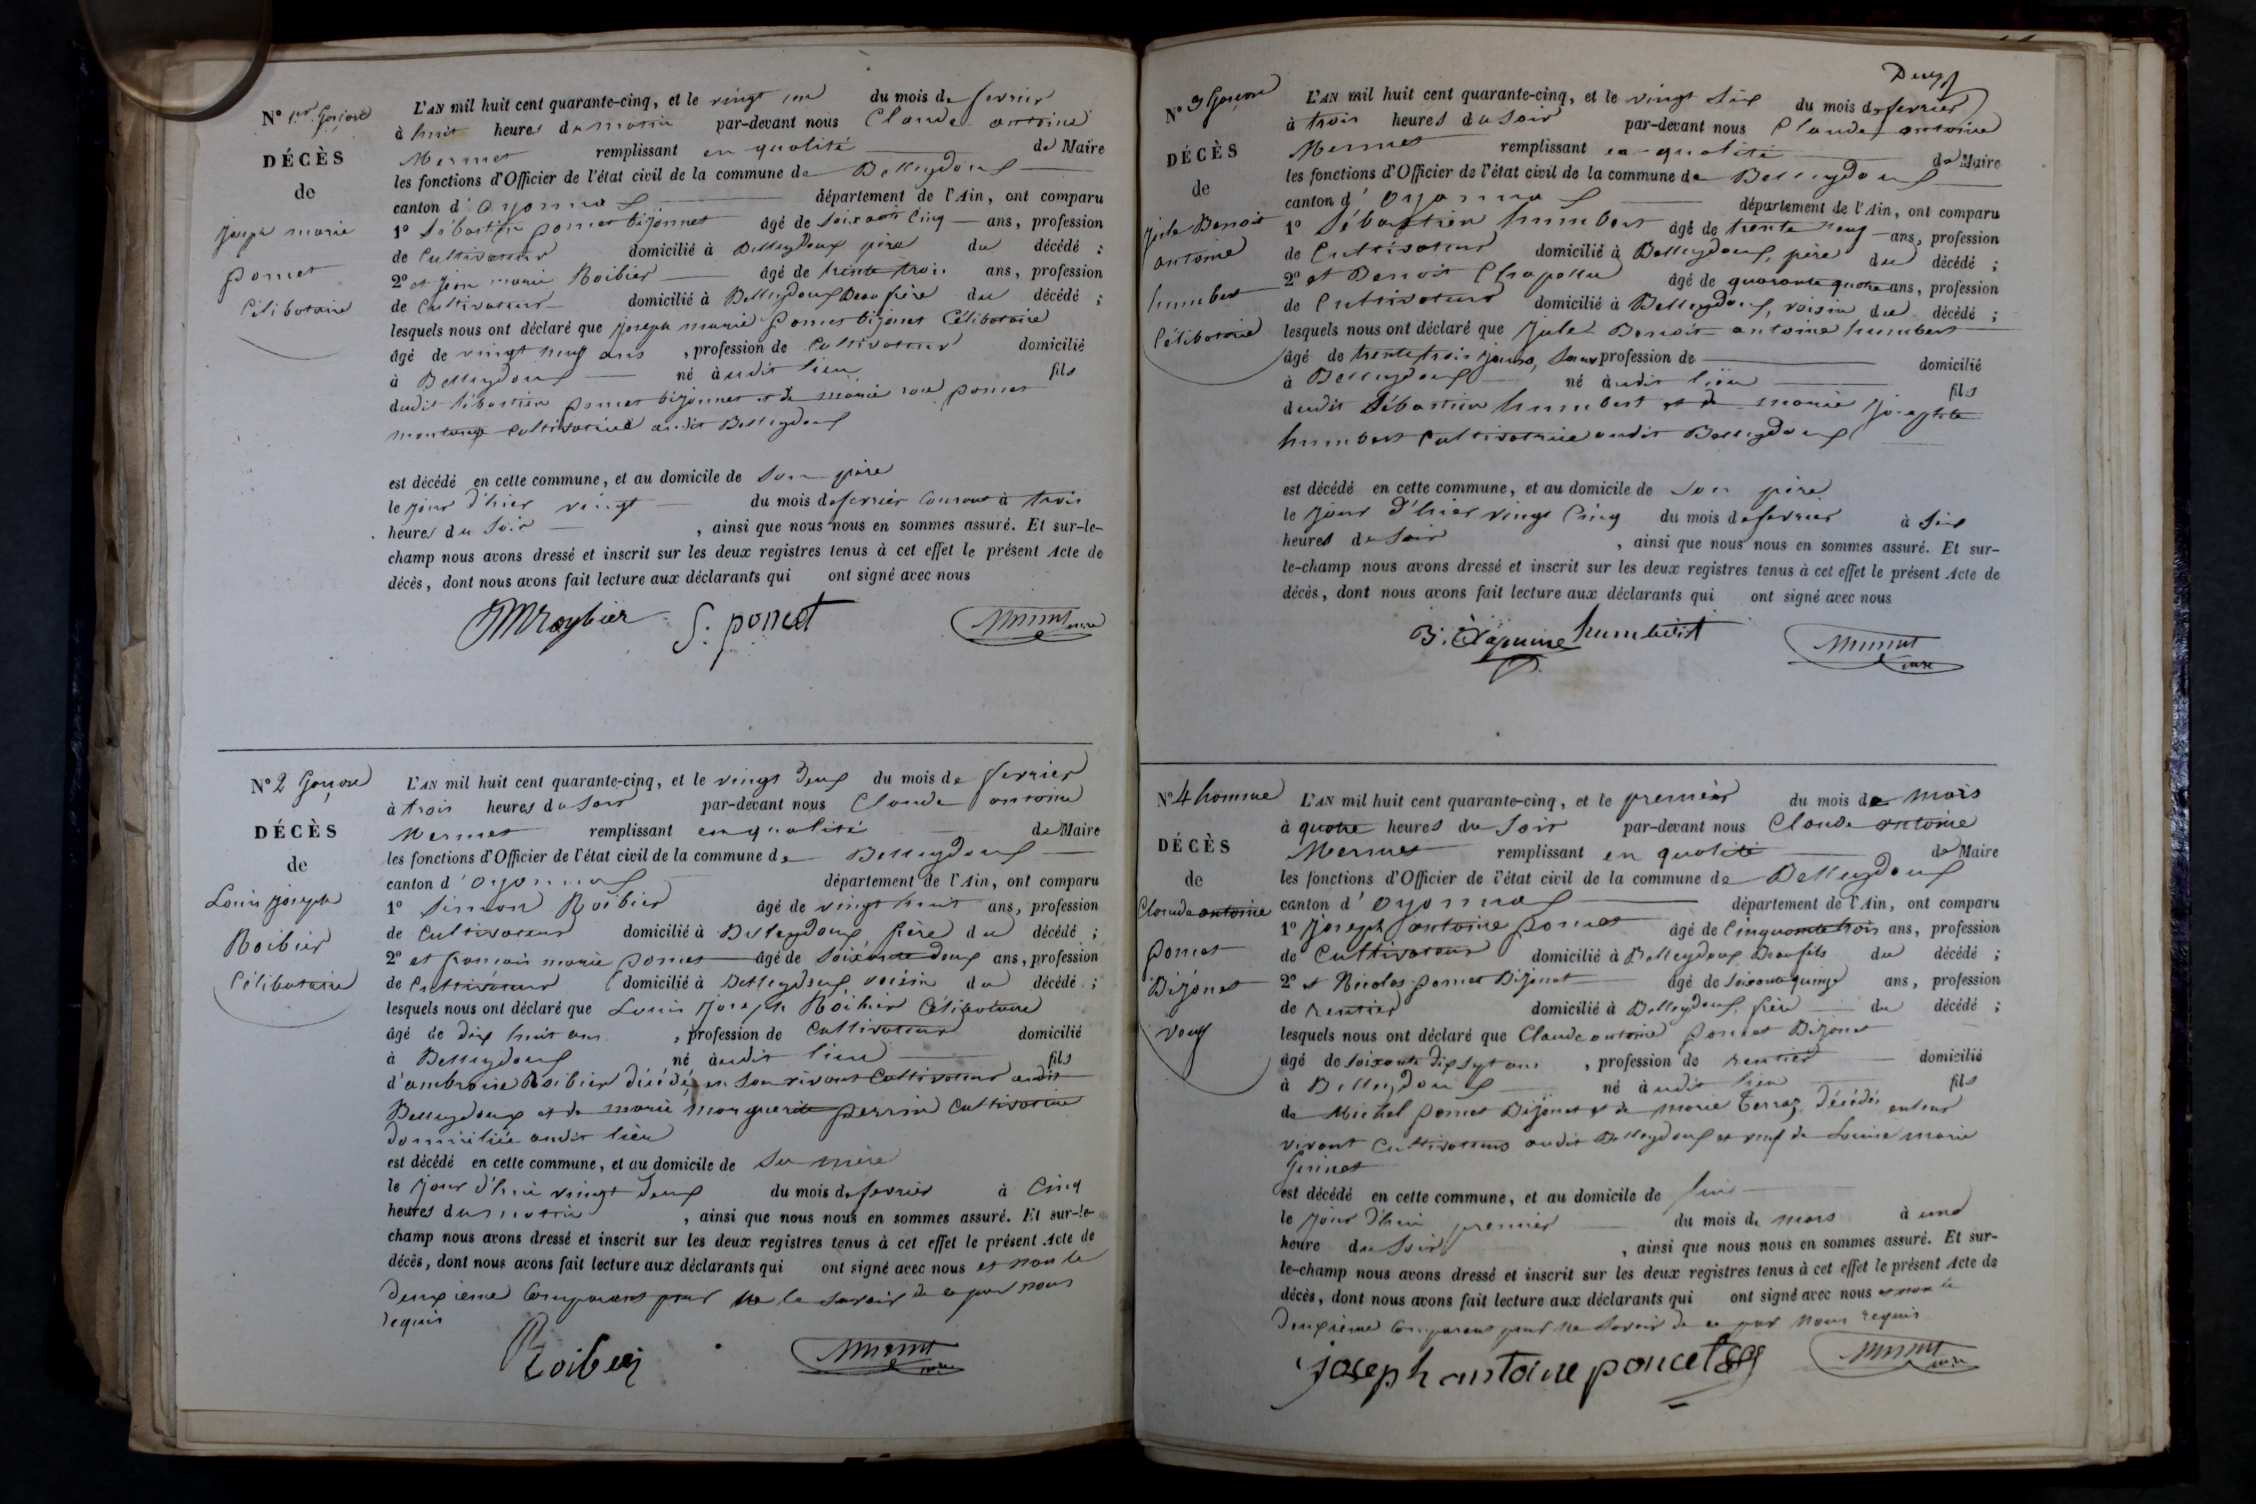 N° 1er Garçon
DÉCÈS
de
joseph marie
poncet
Célibataire
L'AN mil huit cent quarante-cinq, et le vingt un du mois de fevrier
à huit heures du matin par-devant nous Claude antoine
Mermet remplissant en qualité de Maire
les fonctions d'Officier de l'état civil de la commune de Belleydoux
canton d'Oyonnax département de l'Ain, ont comparu
1° Sébastien poncet bijonnet âgé de soixante cinq ans, profession
de Cultivateur domicilié à Belleydoux père du décédé ;
2° et jean marie Roibier âgé de trente trois ans, profession
de Cultivateur domicilié à Belleydoux Beau frère du décédé ;
lesquels nous ont déclaré que joseph marie poncet bijonet Célibataire
âgé de vingt neuf ans , profession de Cultivateur domicilié
à Belleydoux né àudit lieu fils
dudit Sébastien poncet bijonnet et de marie rose poncet
montange Cultivatrice audit Belleydoux
est décédé en cette commune, et au domicile de son père
le jour d'hier vingt du mois de fevrier courant à trois
heures du soir , ainsi que nous nous en sommes assuré. Et sur-le-
champ nous avons dressé et inscrit sur les deux registres tenus à cet effet le présent Acte de
décès, dont nous avons fait lecture aux déclarants qui ont signé avec nous
JM Roybier S. poncet Mermet maire
N° 2 Garçon
DÉCÈS
de
Louis joseph
Roibier
Célibataire
L'AN mil huit cent quarante-cinq, et le vingt deux du mois de fevrier
à trois heures du soir par-devant nous Claude antoine
Mermet remplissant en qualité de Maire
les fonctions d'Officier de l'état civil de la commune de Belleydoux
canton d'Oyonnax département de l'Ain, ont comparu
1° Simeon Roibier âgé de vingt huit ans, profession
de Cultivateur domicilié à Belleydoux frère du décédé ;
2° et francois marie poncet âgé de soixante deux ans, profession
de Cultivateur domicilié à Belleydoux voisin du décédé ;
lesquels nous ont déclaré que Louis joseph Roibier Célibataire
âgé de dix huit ans , profession de Cultivateur domicilié
à Belleydoux né àudit lieu fils
d'ambroise Roibier décédé en son vivant Cultivateur audit
Belleydoux et de marie marguerite perrin Cultivatrice
domiciliée audit lieu
est décédé en cette commune, et au domicile de sa mère
le jour d'hui vingt deux du mois de fevrier à cinq
heures du matin , ainsi que nous nous en sommes assuré. Et sur-le-
champ nous avons dressé et inscrit sur les deux registres tenus à cet effet le présent Acte de
décès, dont nous avons fait lecture aux déclarants qui ont signé avec nous et non le
deuxieme Comparant pour ne le savoir de ce par nous
requis
Roibier Mermet maire
Deux
N° 3 Garçon
DÉCÈS
de
jule Benoit
antoine
humbert
Célibataire
L'AN mil huit cent quarante-cinq, et le vingt six du mois de fevrier
à trois heures du soir par-devant nous Claude antoine
Mermet remplissant en qualité de Maire
les fonctions d'Officier de l'état civil de la commune de Belleydoux
canton d'Oyonnax département de l'Ain, ont comparu
1° Sébastien humbert âgé de trente neuf ans, profession
de Cultivateur domicilié à Belleydoux, père du décédé ;
2° et Benoit Chapellu âgé de quarante quatre ans, profession
de Cultivateur domicilié à Belleydoux, voisin du décédé ;
lesquels nous ont déclaré que jule Benoit antoine humbert
âgé de trente trois jours, sans profession de domicilié
à Belleydoux né àudit lieu fils
dudit Sébastien humbert et de marie josephte
humbert Cultivatrice audit Belleydoux
est décédé en cette commune, et au domicile de son père
le jour d'hier vingt cinq du mois de fevrier à six
heures du soir , ainsi que nous nous en sommes assuré. Et sur-
le-champ nous avons dressé et inscrit sur les deux registres tenus à cet effet le présent Acte de
décès, dont nous avons fait lecture aux déclarants qui ont signé avec nous
humbert Mermet maire
N° 4 homme
DÉCÈS
de
Claude antoine
poncet
Bijonet
veuf
L'AN mil huit cent quarante-cinq, et le premier du mois de mars
à quatre heures du soir par-devant nous Claude antoine
Mermet remplissant en qualité de Maire
les fonctions d'Officier de l'état civil de la commune de Belleydoux
canton d'Oyonnax département de l'Ain, ont comparu
1° joseph antoine poncet âgé de Cinquante trois ans, profession
de Cultivateur domicilié à Belleydoux Beau fils du décédé ;
2° et Nicolas poncet Bijonet âgé de soixante quinze ans, profession
de rentier domicilié à Belleydoux, frère du décédé ;
lesquels nous ont déclaré que Claude antoine poncet Bijonet
âgé de soixante dix sept ans , profession de rentier domicilié
à Belleydoux né àudit lieu fils
de Michel poncet Bijonet et de marie Terraz, décédés en leur
vivant Cultivateurs audit Belleydoux et veuf de Louise marie
Grinet
est décédé en cette commune, et au domicile de lui
le jour d'hui premier du mois de mars à une
heure du soir , ainsi que nous nous en sommes assuré. Et sur-
le-champ nous avons dressé et inscrit sur les deux registres tenus à cet effet le présent Acte de
décès, dont nous avons fait lecture aux déclarants qui ont signé avec nous et non le
deuxieme Comparant pour ne savoir de ce par nous requis
joseph antoine poncet Mermet maire